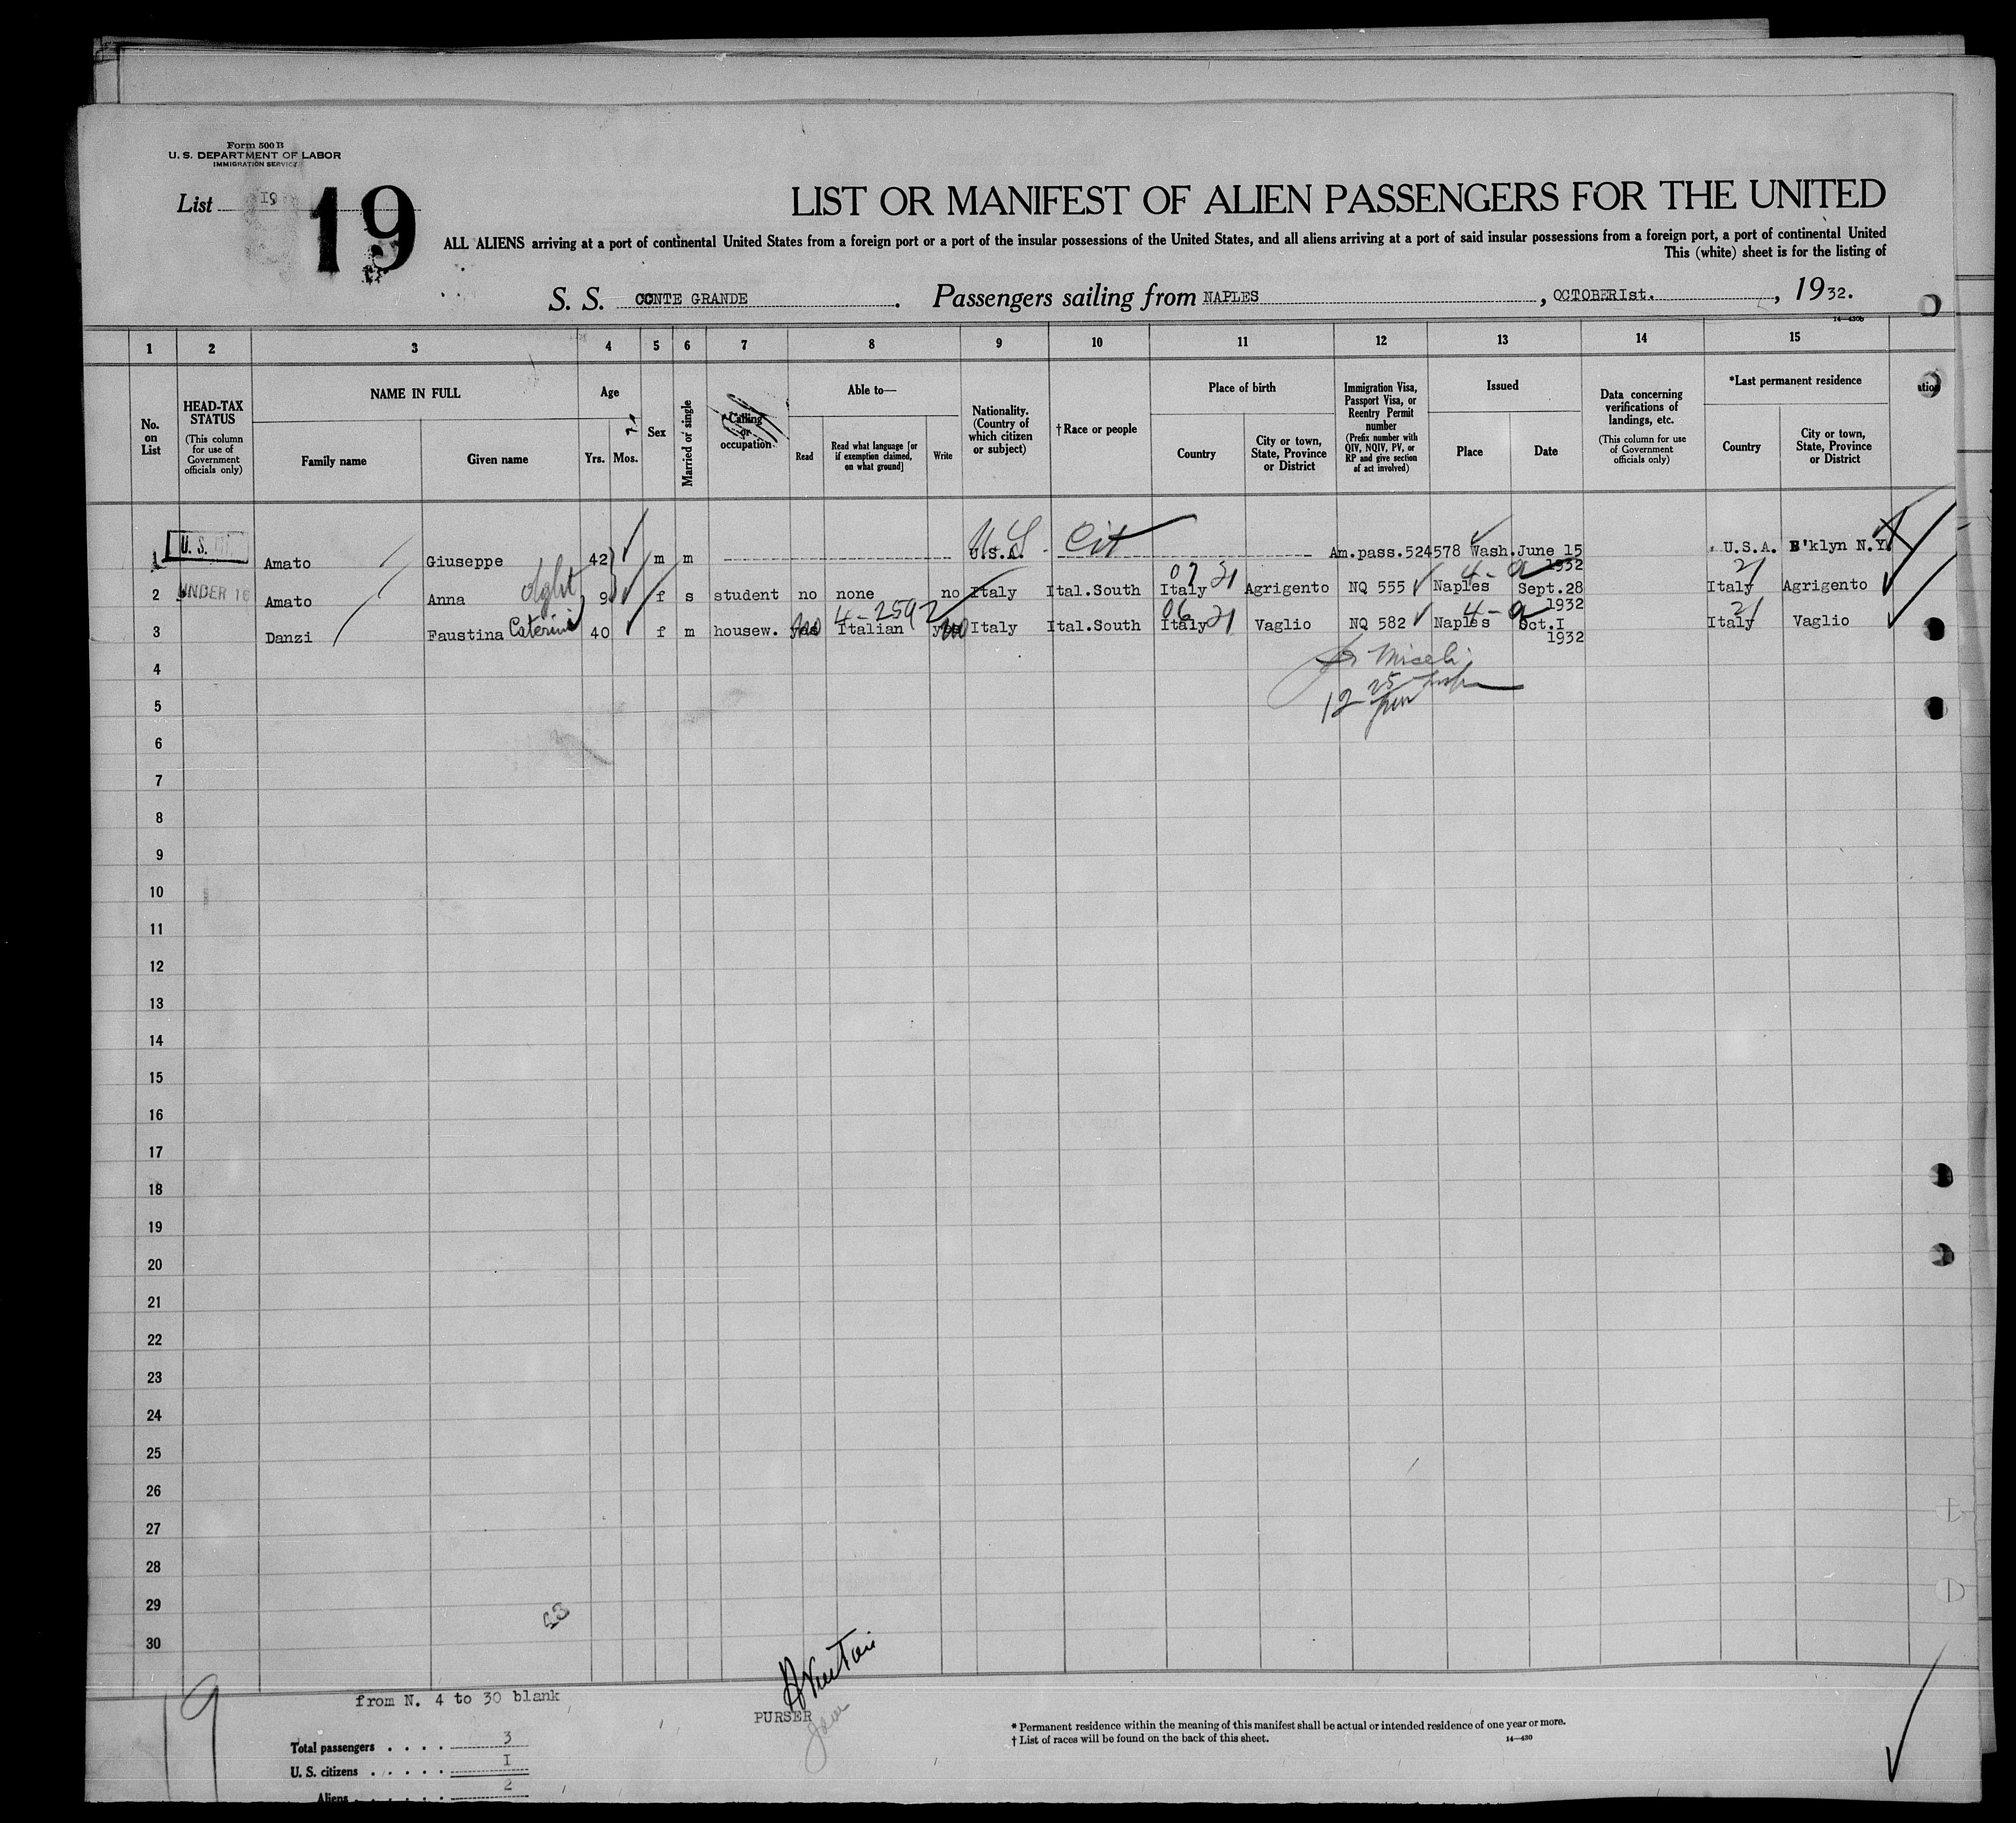 Form 500 B
U. S. DEPARTMENT OF LABOR
IMMIGRATION SERVICE
List I9
19
LIST OR MANIFEST OF ALIEN PASSENGERS FOR THE UNITED
ALL ALIENS arriving at a port of continental United States from a foreign port or a port of the insular possessions of the United States, and all aliens arriving at a port of said insular possessions from a foreign port, a port of continental United
This (white) sheet is for the listing of
S. S. CONTE GRANDE. Passengers sailing from NAPLES, OCTOBER Ist., 1932.
14—430b
1 2 3 4 5 6 7 8 9 10 11 12 13 14 15
No. on List
HEAD-TAX STATUS (This column for use of Government officials only)
NAME IN FULL Family name Given name
Age Yrs. Mos.
Sex
Married or single
Calling or occupation
Able to— Read Read what language [or if exemption claimed, on what ground] Write
Nationality. (Country of which citizen or subject)
† Race or people
Place of birth Country City or town, State, Province or District
Immigration Visa, Passport Visa, or Reentry Permit number (Prefix number with QIV, NQIV, PV, or RP and give section of act involved)
Issued Place Date
Data concerning verifications of landings, etc. (This column for use of Government officials only)
*Last permanent residence Country City or town, State, Province or District
U S Cit
1 U. S. Amato Giuseppe 42 m m U.S.A. Am.pass.524578 Wash. June 15 1932 U.S.A. B'klyn N.Y.
07 21 4- a 21
2 UNDER 16 Amato Anna dght 9 f s student no none no Italy Ital.South Italy Agrigento NQ 555 Naples Sept.28 1932 Italy Agrigento
4-2592 06 21 4- a 21
3 Danzi Faustina Caterina 40 f m housew. yes no Italian yes no Italy Ital.South Italy Vaglio NQ 582 Naples Oct.I 1932 Italy Vaglio
Miceli
12 25
4
5
6
7
8
9
10
11
12
13
14
15
16
17
18
19
20
21
22
23
24
25
26
27
28
29
30
19
from N. 4 to 30 blank
PURSER
Total passengers . . . . 3
U. S. citizens . . . . . I
Aliens . . . . . . 2
* Permanent residence within the meaning of this manifest shall be actual or intended residence of one year or more.
† List of races will be found on the back of this sheet.
14—430